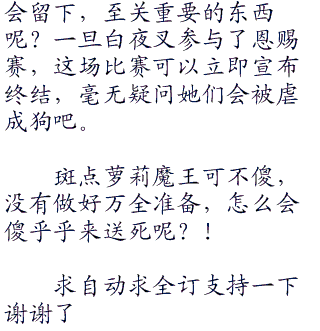 会留下，至关重要的东西
呢？一旦白夜叉参与了恩赐
赛，这场比赛可以立即宣布
终结，毫无疑问她们会被虐
成狗吧。
斑点萝莉魔王可不傻，
没有做好万全准备，怎么会
傻乎乎来送死呢？！
求自动求全订支持一下
谢谢了